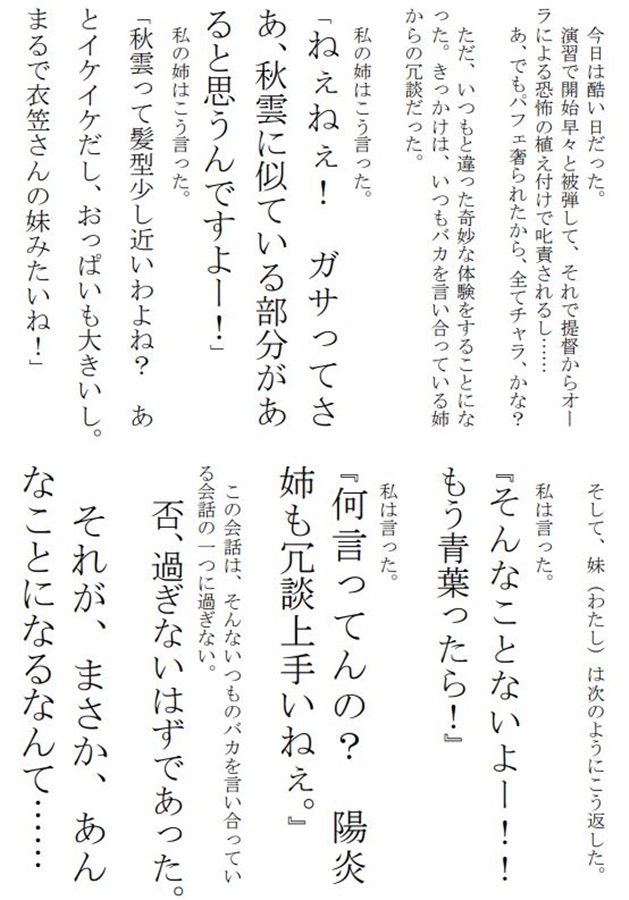 今日は酷い日だった。
演習で開始早々と被弾して、それで提督からオー
ラによる恐怖の植え付けで叱責されるし……
あ、でもパフェ奢られたから、全てチャラ、かな?
ただ、いつもと違った奇妙な体験をすることにな
った。きっかけは、いつもバカを言い合っている姉
からの冗談だった。
私の姉はこう言った。
「ねぇねぇ! ガサってさ
あ、秋雲に似ている部分があ
ると思うんですよー!」
私の姉はこう言った。
「秋雲って髪型少し近いわよね? あ
とイケイケだし、おっぱいも大きいし。
まるで衣笠さんの妹みたいね!」
そして、妹(わたし)は次のようにこう返した。
私は言った。
『そんなことないよー!!
もう青葉ったら!』
私は言った。
『何言ってんの? 陽炎
姉も冗談上手いねぇ。』
この会話は、そんないつものバカを言い合ってい
る会話の一つに過ぎない。
否、過ぎないはずであった。
それが、まさか、あん
なことになるなんて……